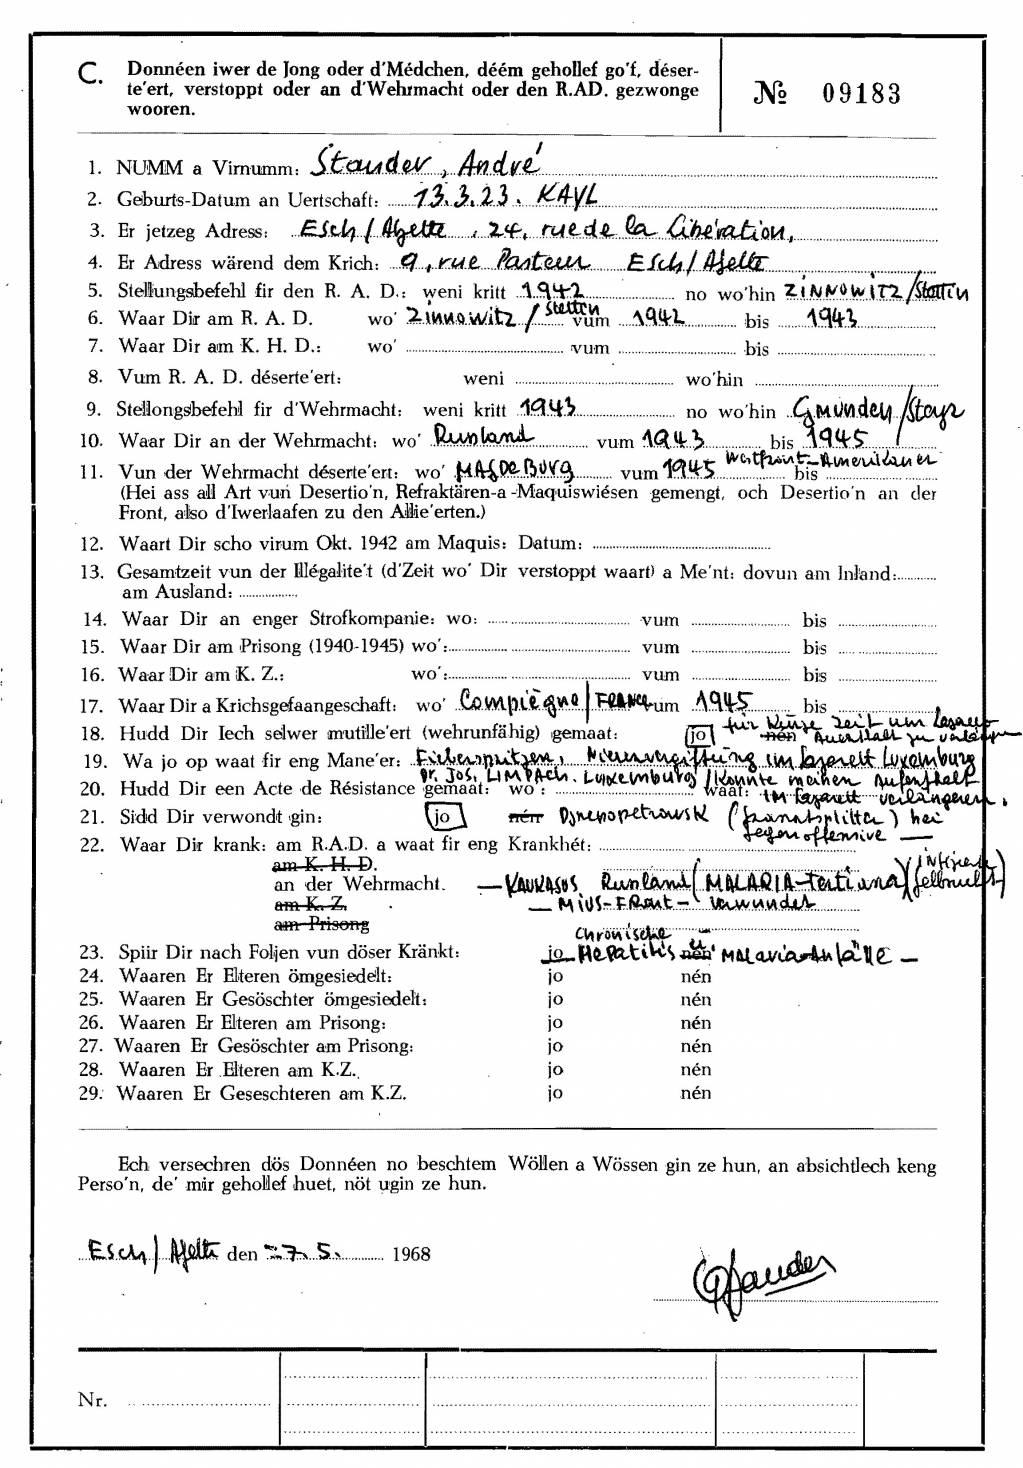 C. Donnéen iwer de Jong oder d'Médchen, déém gehollef go'f, déser-
te'ert, verstoppt oder an d'Wehrmacht oder den R.AD. gezwonge
wooren.
№ 09183
1. NUMM a Virnumm: Stauder, André
2. Geburts-Datum an Uertschaft: 13.3.23. KAYL
3. Er jetzeg Adress: Esch/Alzette, 24, rue de la Libération,
4. Er Adress wärend dem Krich: 9, rue Pasteur Esch/Alzette
5. Stellungsbefehl fir den R. A. D.: weni kritt 1942 no wo'hin ZINNOWITZ/Stettin
6. Waar Dir am R. A. D. wo' Zinnowitz/Stettin vum 1942 bis 1943
7. Waar Dir am K. H. D.: wo' vum bis
8. Vum R. A. D. déserte'ert: weni wo'hin
9. Stellongsbefehl fir d'Wehrmacht: weni kritt 1943 no wo'hin Gmunden/Steyr
10. Waar Dir an der Wehrmacht: wo' Russland vum 1943 bis 1945
11. Vun der Wehrmacht déserte'ert: wo' MAGDEBURG vum 1945 Westfront-Amerikaner bis
(Hei ass all Art vun Desertio'n, Refraktären-a-Maquiswiésen gemengt, och Desertio'n an der
Front, also d'Iwerlaafen zu den Allie'erten.)
12. Waart Dir scho virum Okt. 1942 am Maquis: Datum:
13. Gesamtzeit vun der Illégalite't (d'Zeit wo' Dir verstoppt waart) a Me'nt: dovun am Inland:
am Ausland:
14. Waar Dir an enger Strofkompanie: wo: vum bis
15. Waar Dir am Prisong (1940-1945) wo': vum bis
16. Waar Dir am K. Z.: wo': vum bis
17. Waar Dir a Krichsgefaangeschaft: wo' Compiègne/FRANCE vum 1945 bis
für kurze Zeit um Lazarett
18. Hudd Dir Iech selwer mutille'ert (wehrunfähig) gemaat: jo nén Aufenthalt zu verlängern
19. Wa jo op waat fir eng Mane'er: Fieberspritzen, Nierenvergiftung im Lazarett Luxemburg
Dr. Jos. LIMPACH. Luxemburg/konnte meinen Aufenthalt
20. Hudd Dir een Acte de Résistance gemaat: wo': waat: im Lazarett verlängeren.
21. Sidd Dir verwondt gin: jo nén Dynepopetrowsk (Granatsplitter) bei
Gegenoffensive —
22. Waar Dir krank: am R.A.D. a waat fir eng Krankhét:
am K. H. D.
an der Wehrmacht. — KAUKASUS Russland (MALARIA-Tertiana)
am K. Z. — MIUS-FRont- Verwundet
am Prisong
chronische
23. Spiir Dir nach Foljen vun döser Kränkt: jo HEPatitis nén MALaria-Anfälle —
24. Waaren Er Elteren ömgesiedelt: jo nén
25. Waaren Er Gesöschter ömgesiedelt: jo nén
26. Waaren Er Elteren am Prisong: jo nén
27. Waaren Er Gesöschter am Prisong: jo nén
28. Waaren Er Elteren am K.Z. jo nén
29. Waaren Er Geseschteren am K.Z. jo nén
Ech versechren dös Donnéen no beschtem Wöllen a Wössen gin ze hun, an absichtlech keng
Perso'n, de' mir gehollef huet, nöt ugin ze hun.
Esch/Alzette den 27.5. 1968
Stauder
Nr.